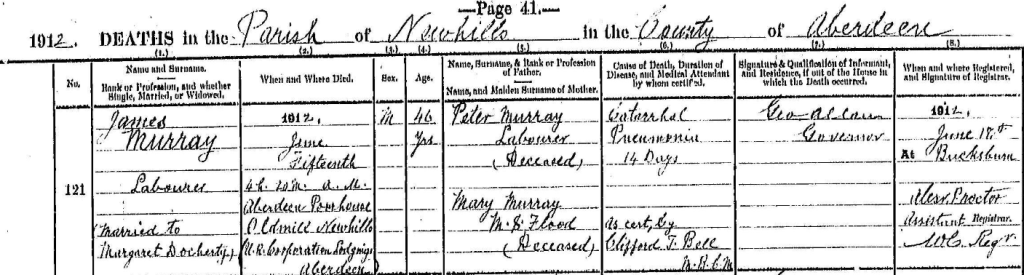 —Page 41.—
1912. DEATHS in the Parish of Newhills in the County of Aberdeen
(1.) (2.) (3.) (4.) (5.) (6.) (7.) (8.)
No.
Name and Surname.
Rank or Profession, and whether Single, Married, or Widowed.
When and Where Died.
Sex.
Age.
Name, Surname, & Rank or Profession of Father.
Name, and Maiden Surname of Mother.
Cause of Death, Duration of Disease, and Medical Attendant by whom certified.
Signature & Qualification of Informant, and Residence, if out of the House in which the Death occurred.
When and where Registered, and Signature of Registrar.
121
James
Murray
Labourer
Married to
Margaret Docherty
1912,
June
Fifteenth
4h. 20m. A.M.
Aberdeen Poorhouse
Oldmill Newhills
(U.R. Corporation Lodgings
Aberdeen)
M
46
Yrs
Peter Murray
Labourer
(Deceased)
Mary Murray
M.S. Flood
(Deceased)
Catarrhal
Pneumonia
14 Days
As cert. by
Clifford T. Bell
Geo
Governor
1912,
June 18th
At Bucksburn
Alexr Proctor
Assistant Registrar.